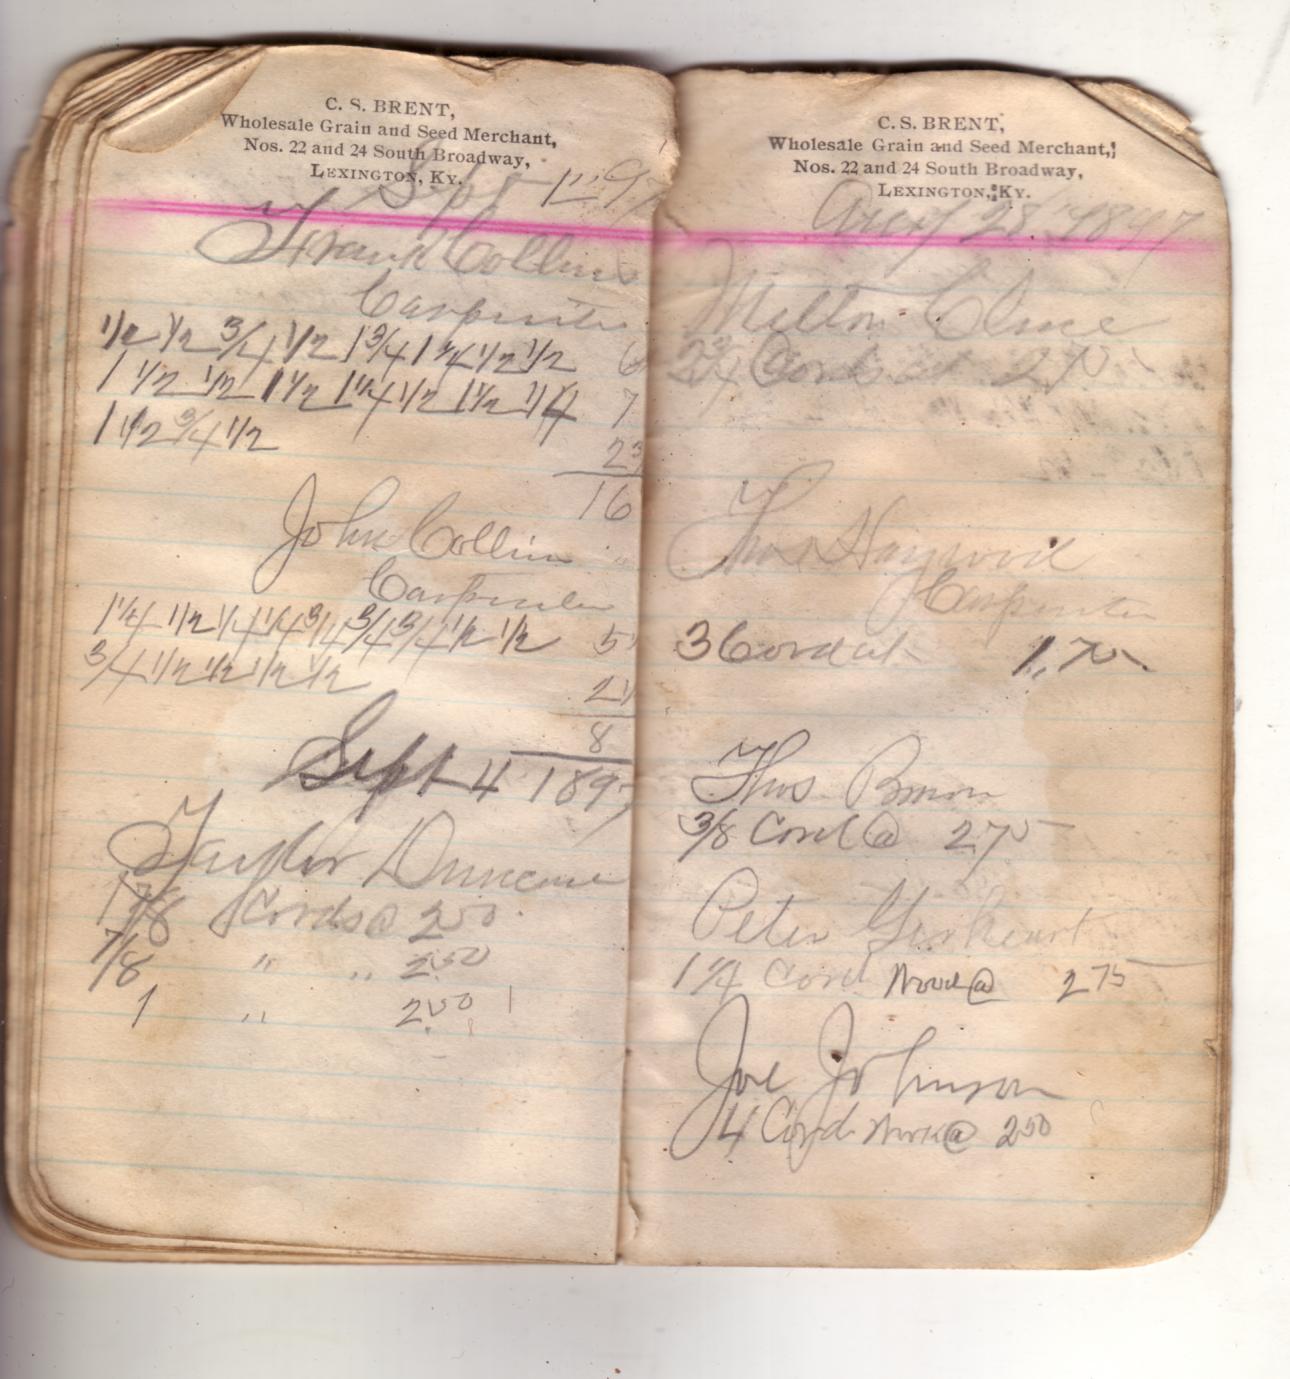 C. S. BRENT,
Wholesale Grain and Seed Merchant,
Nos. 22 and 24 South Broadway,
LEXINGTON, KY.
Sept 1" 97
Frank Collins
Carpenter
1/2 1/2 3/4 1/2 1 3/4 1 1/4 1/2 1/2 6
1 1/2 1/2 1 1/2 1 1/4 1/2 1 1/2 1/4 7
1 1/2 3/4 1/2
2 3/
16
John Collin
Carpenter
1 1/4 1/2 1/4 1/4 3/4 3/4 3/4 1/2 1/2 5
3/4 1/2 1/2 1/2 1/2
2 1/
8
Sept 4 1897
Taylor Duncan
1 7/8 Cords @ 2 50
7/8 " " 2.50
1 " 2.50
C. S. BRENT,
Wholesale Grain and Seed Merchant,
Nos. 22 and 24 South Broadway,
LEXINGTON, KY.
28, 1897
Milton
2 3/4 Cords at 2 75
Thos Haywood
Carpenter
3 Cord at 1.75
Thos Brown
3/8 Cord @ 2 75
Peter
1 1/4 Cord Wood @ 2 75
Joe Johnson
4 Cord Work @ 2 50